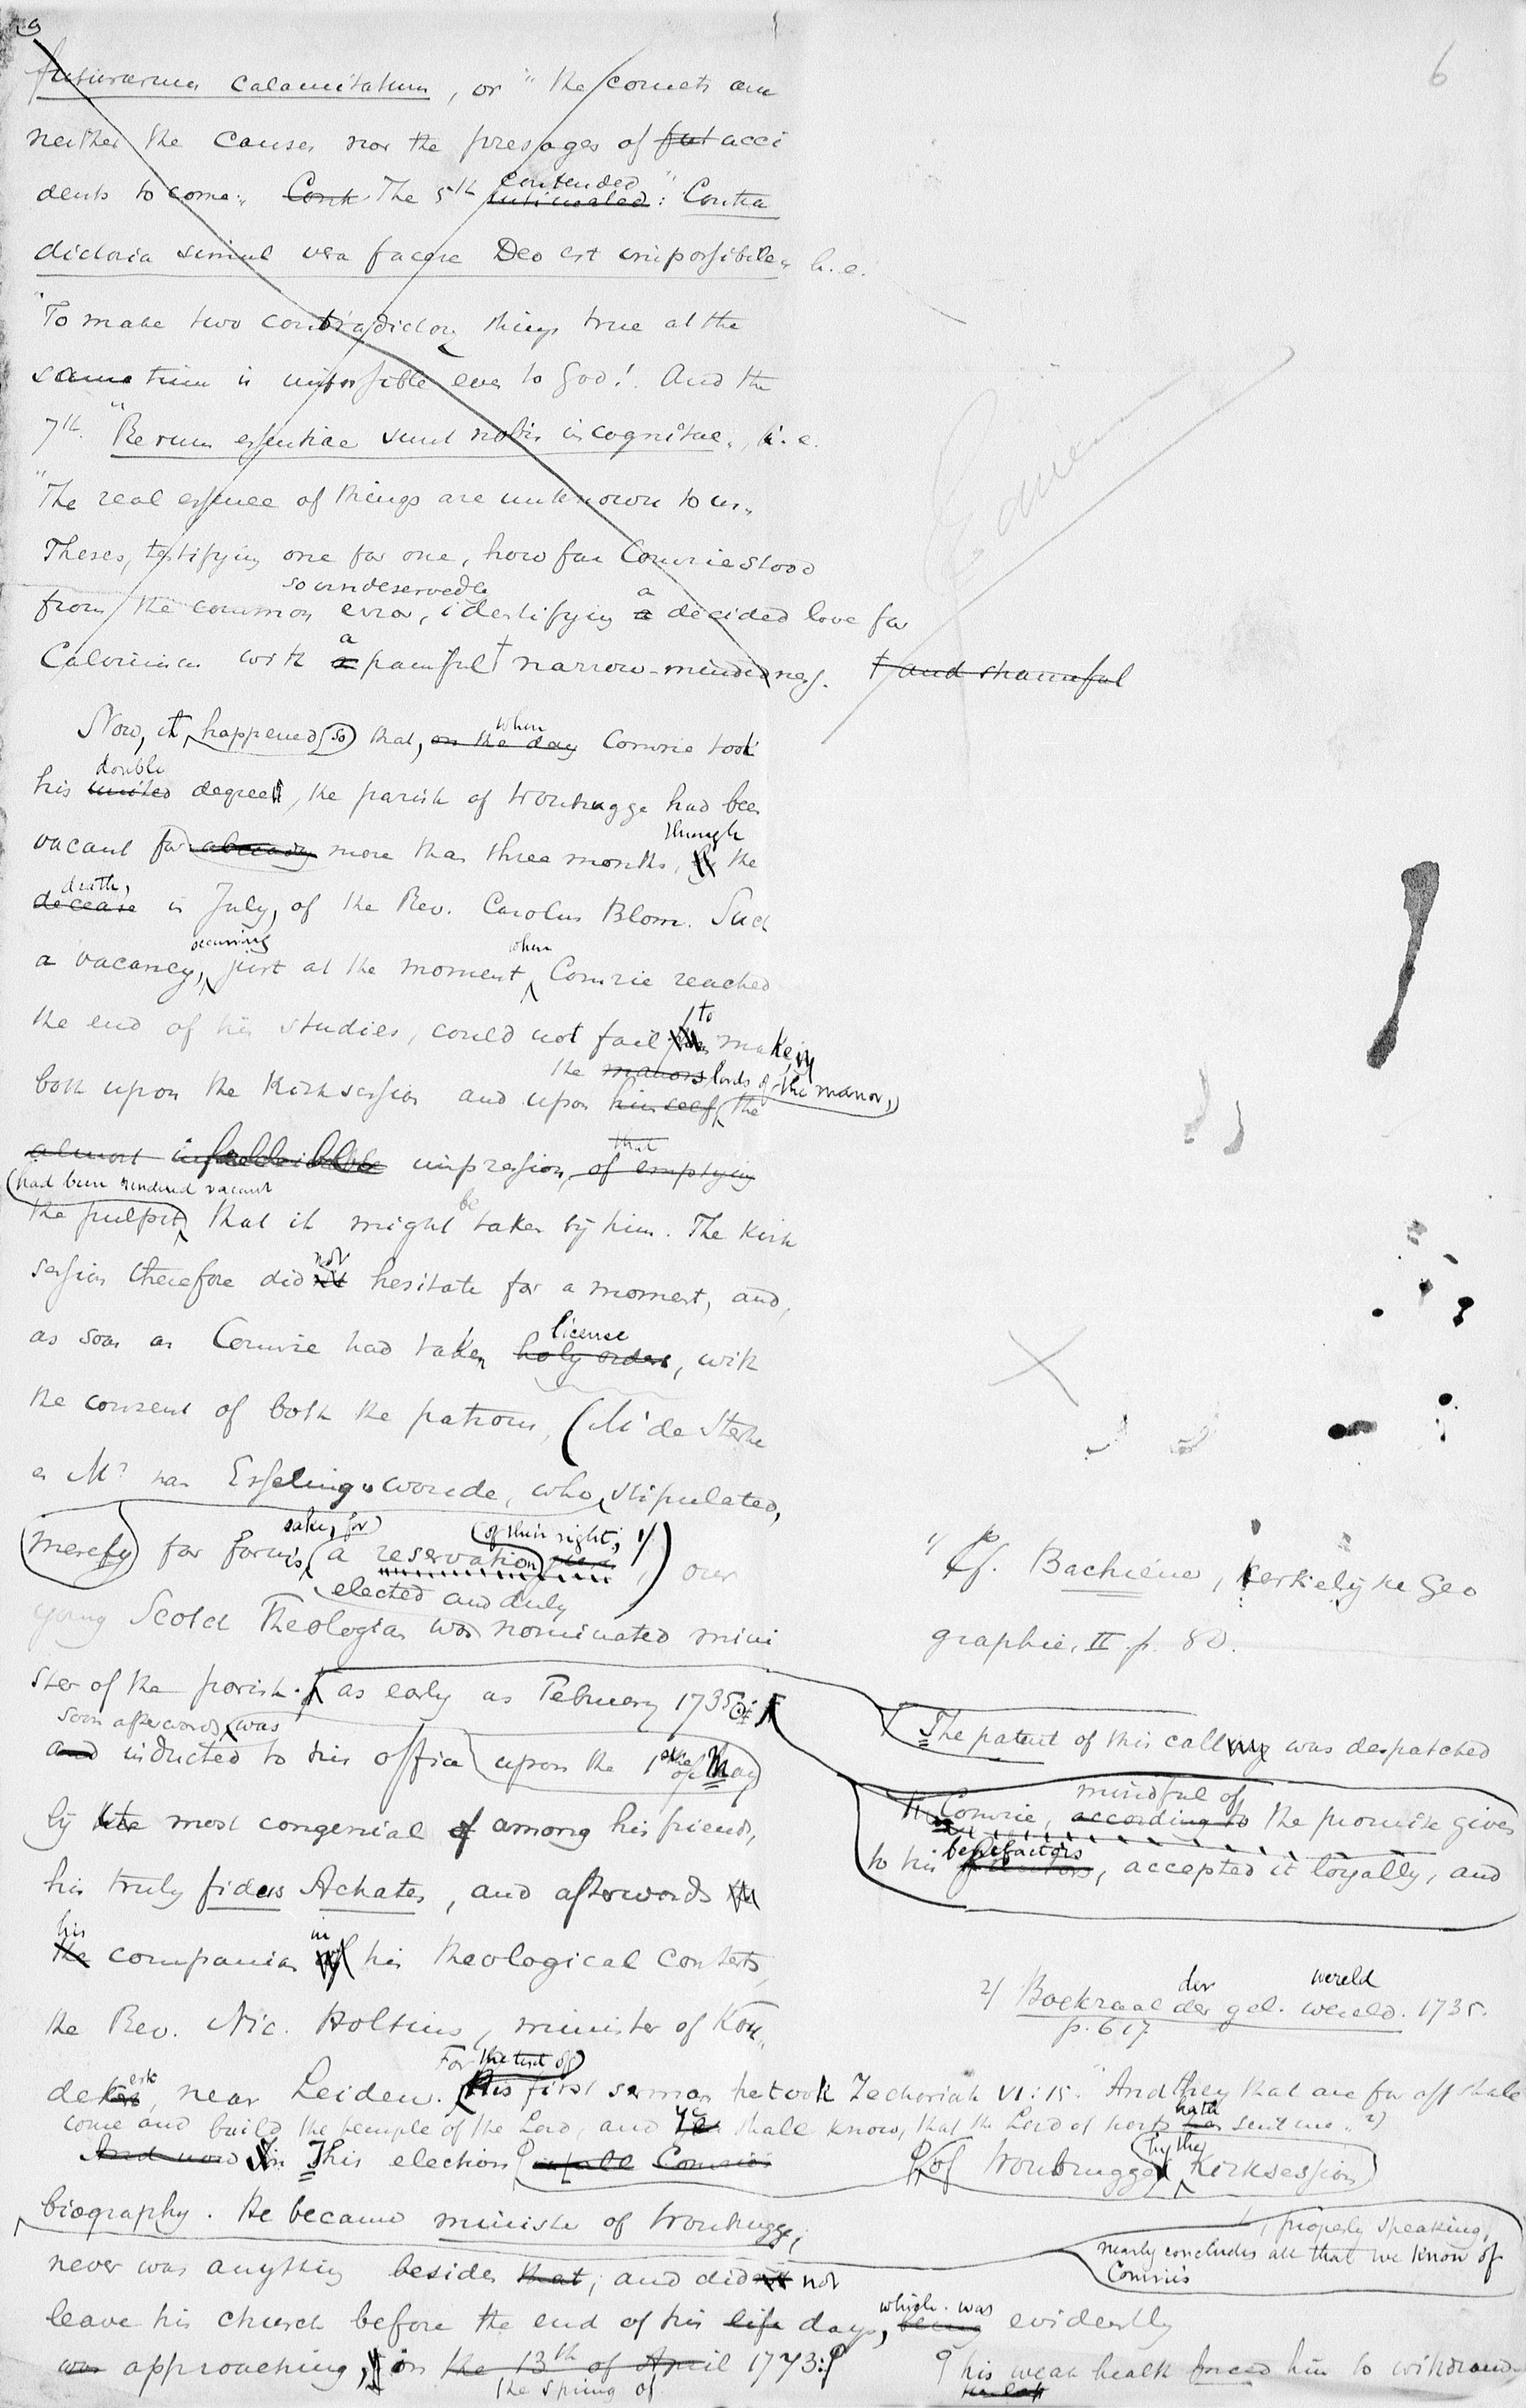 6
futurarum calamitatum, or "the comets are
neither the causes nor the presages of fut acci
dents to come„ Cont The 5th intimated contended: Contra
dictoria simul vera facere Deo est impossibile„ h.e.
"To make two contradictory things true at the
same time is impossible even to God! And the
7th. "Rerum essentiae sunt nobis incognitae„, h.e.
"The real essence of things are unknown to us„
Theses, testifying one for one, how far Comrie stood
so undeservedly
from the common error, identifying a decided love for
Calvinism with a painful † narrow-mindedness. † and shameful
Now, it happened (so) that, on the day when Comrie took
his united double degree, the parish of Woubrugge had been
vacant for already more than three months, by through the
decease death, in July, of the Rev. Carolus Blom. Such
a vacancy, occurring just at the moment when Comrie reached
the end of his studies, could not fail to making
the manors lords of the manor,
both upon the Kirksession and upon himself the
almost infallible impression, that of emptying
(had been rendered vacant
the pulpit, that it might be taken by him. The Kirk
session therefore did not hesitate for a moment, and,
as soon as Comrie had taken holy orders license, with
the consent of both the patrons, (Mr de Sterke
en Mr van Esselingswoude, who stipulated,
merely for form's sake, for) a reservation (of their right, 1/) our
elected and duly
young Scotch Theologian was nominated mini
ster of the parish. as early as February 1735
soon afterwards, was
and inducted to his office upon the 1st of the May
by the most congenial of among his friends,
his truly fidus Achates, and afterwards
the his companion of in his theological contests,
the Rev. Nic. Holtius, minister of Kou„
dekerk, near Leiden. For the text of his first sermon he took Zechariah VI:15. "And they that are far off shall
come and build the temple of the Lord, and Ye shall know, that the Lord of hosts has hath sent me„ 2)
And now In This election of all Comries of Woubrugge, by the Kirksession
biography. He became minister of Woubrugge,
never was anything besides that, and did not
leave his church before the end of his life days, being which was evidently
was approaching, in the 13th of April 1773:
the spring of
1/ Cf. Bachiene, Kerkelijke Geo
graphie, II p. 80.
The patent of this calling was despatched
Comrie, according to mindful of the promise given
to his benefactors, accepted it loyally, and
2/ Boekzaal der gel. wereld. 1735.
p. 617
, properly speaking,
nearly concludes all that we know of
Comrie's
his weak health forced him to withdraw